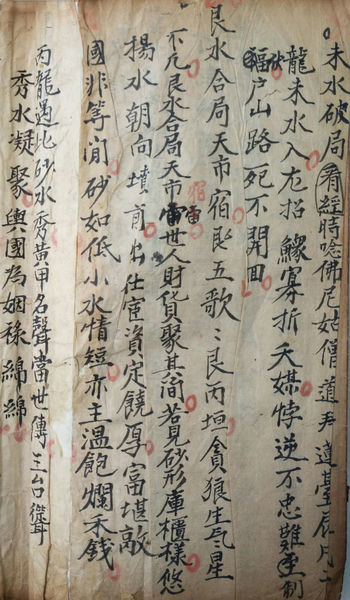 未水破局看經時唸佛尼姑僧道
龍未水入左招鰥寡折夭媒悖逆不忠難
福户山路死不開
艮水合局天市宿艮五歌艮丙垣貪狼生气星
不凡艮水合局天市宿當世人財貨聚其间若見砂形庫櫃樣悠
揚水朝向墳前出仕宦資定饒厚富堪敵
國非等闲砂如低小水情短亦主温飽爛禾錢
丙龍遇此砂水秀黃甲名聲當世傳三台聳
秀水凝聚與國為姻禄綿綿